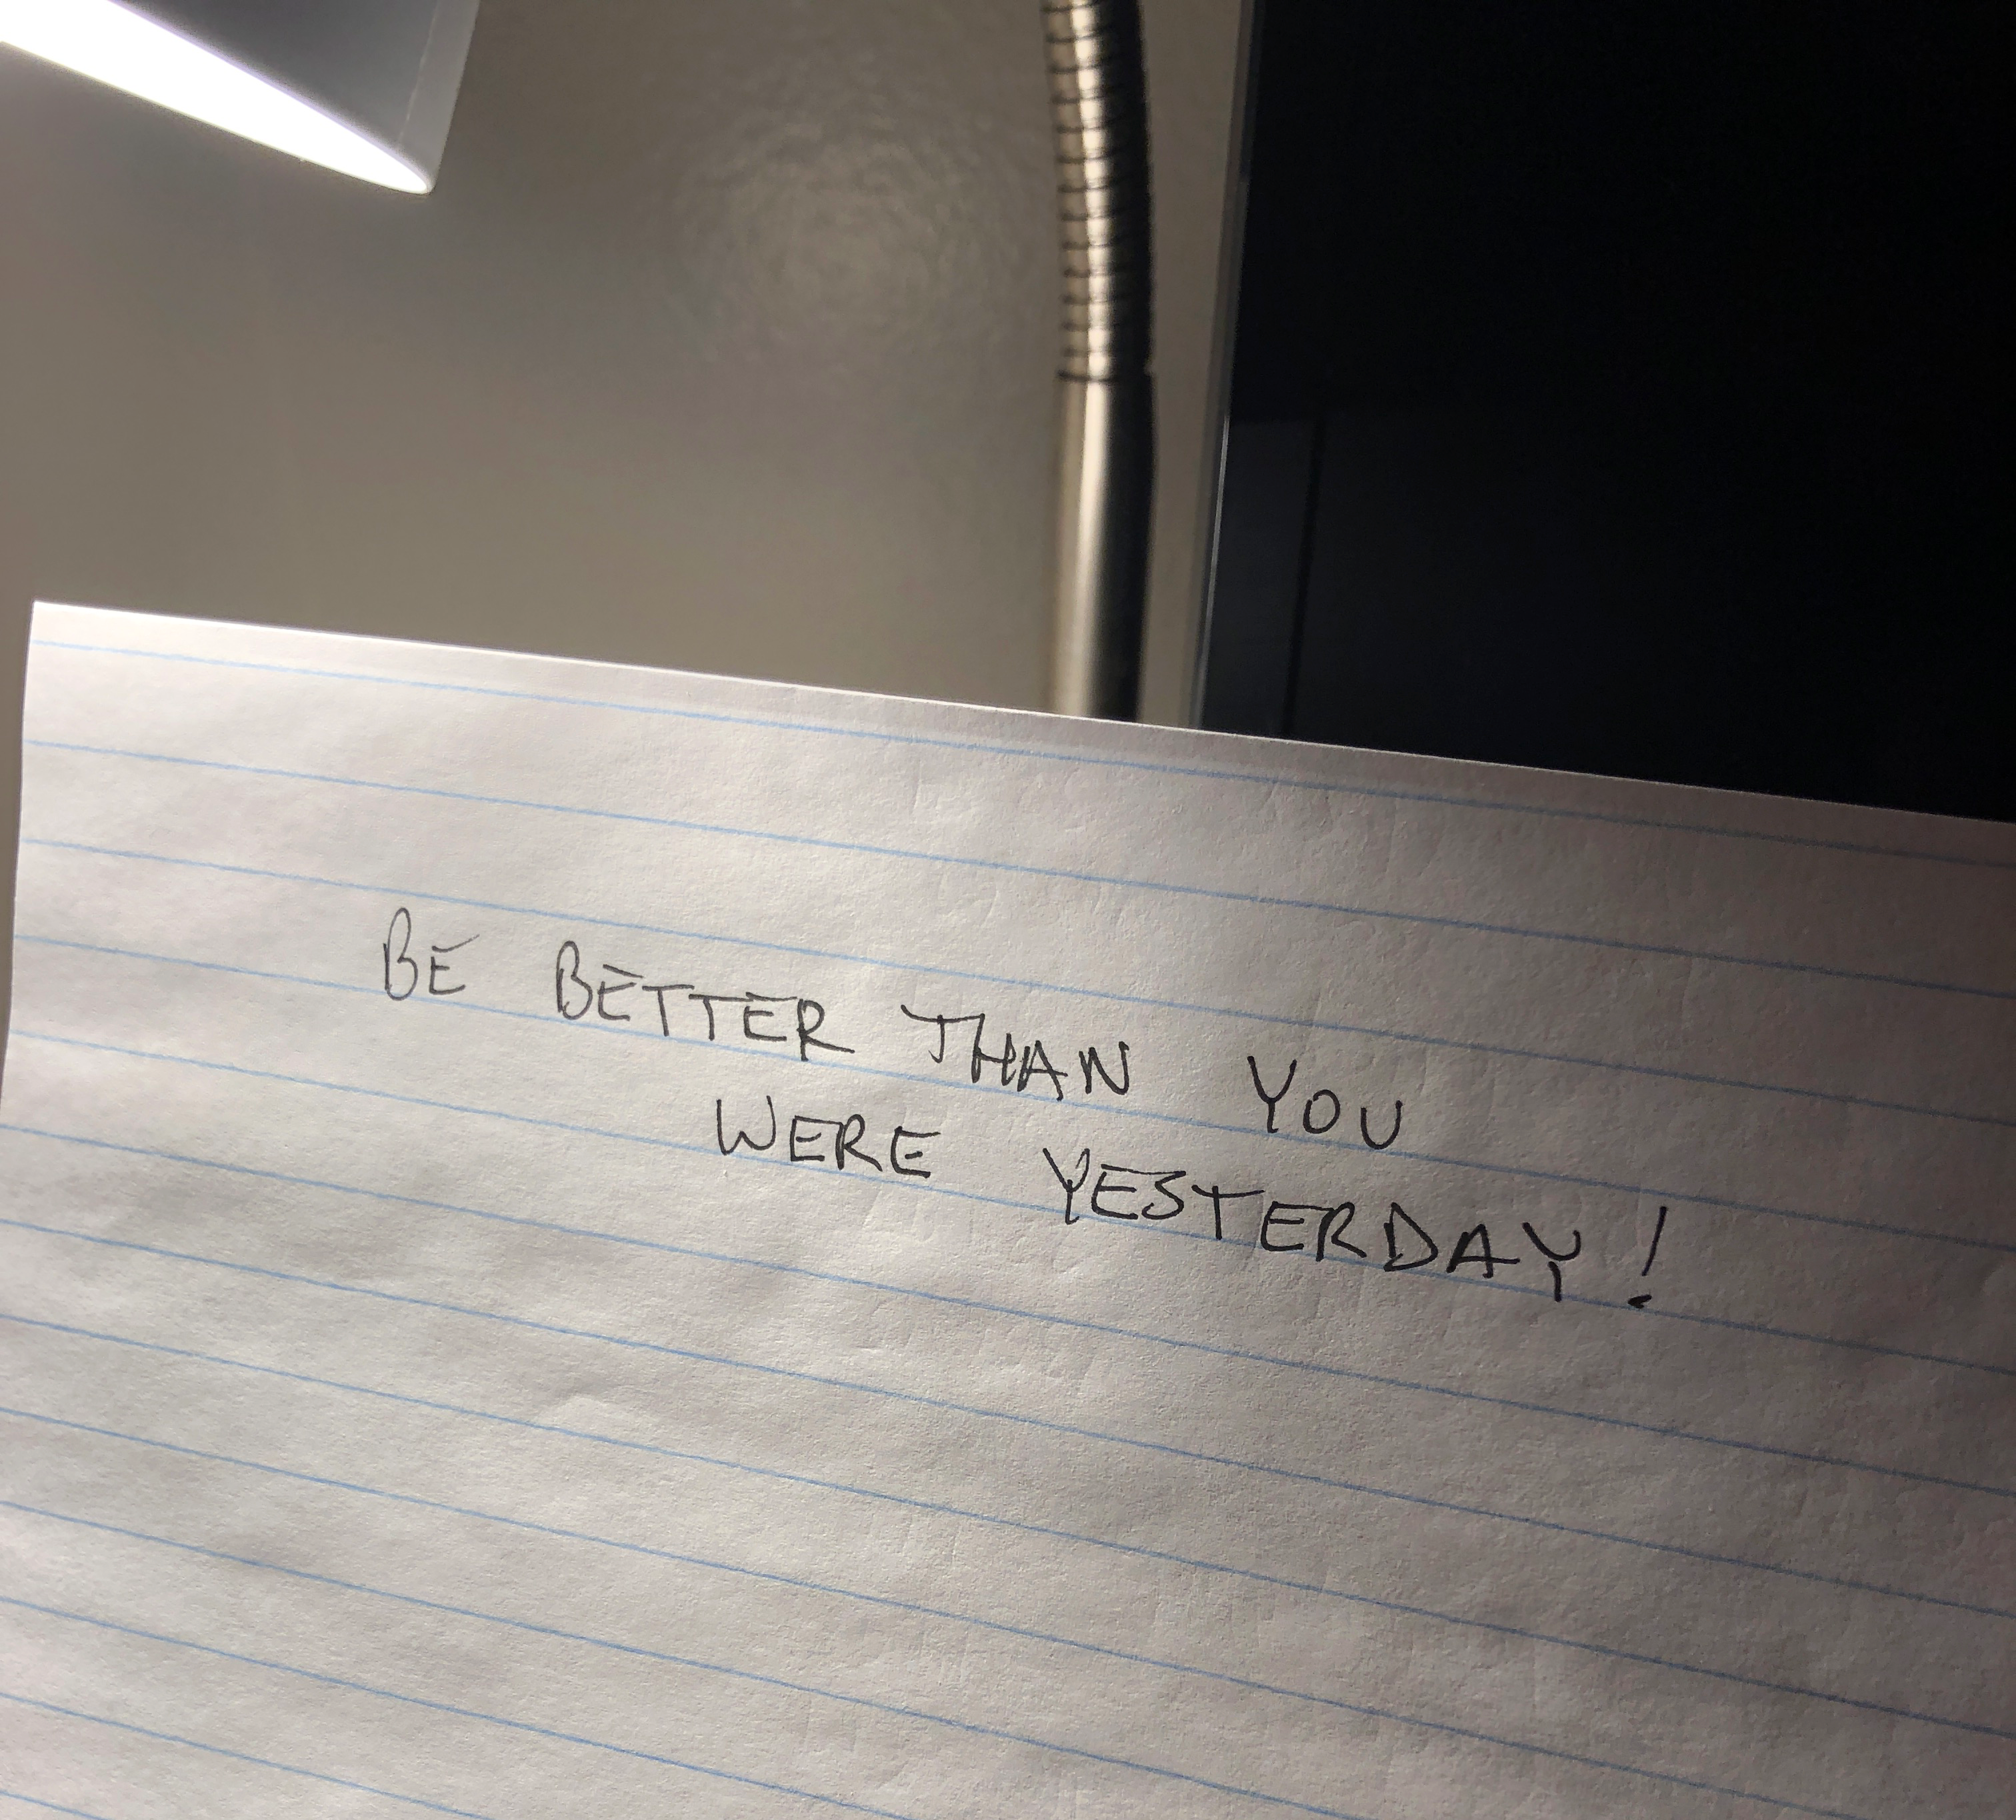 BE BETTER THAN YOU
WERE YESTERDAY!